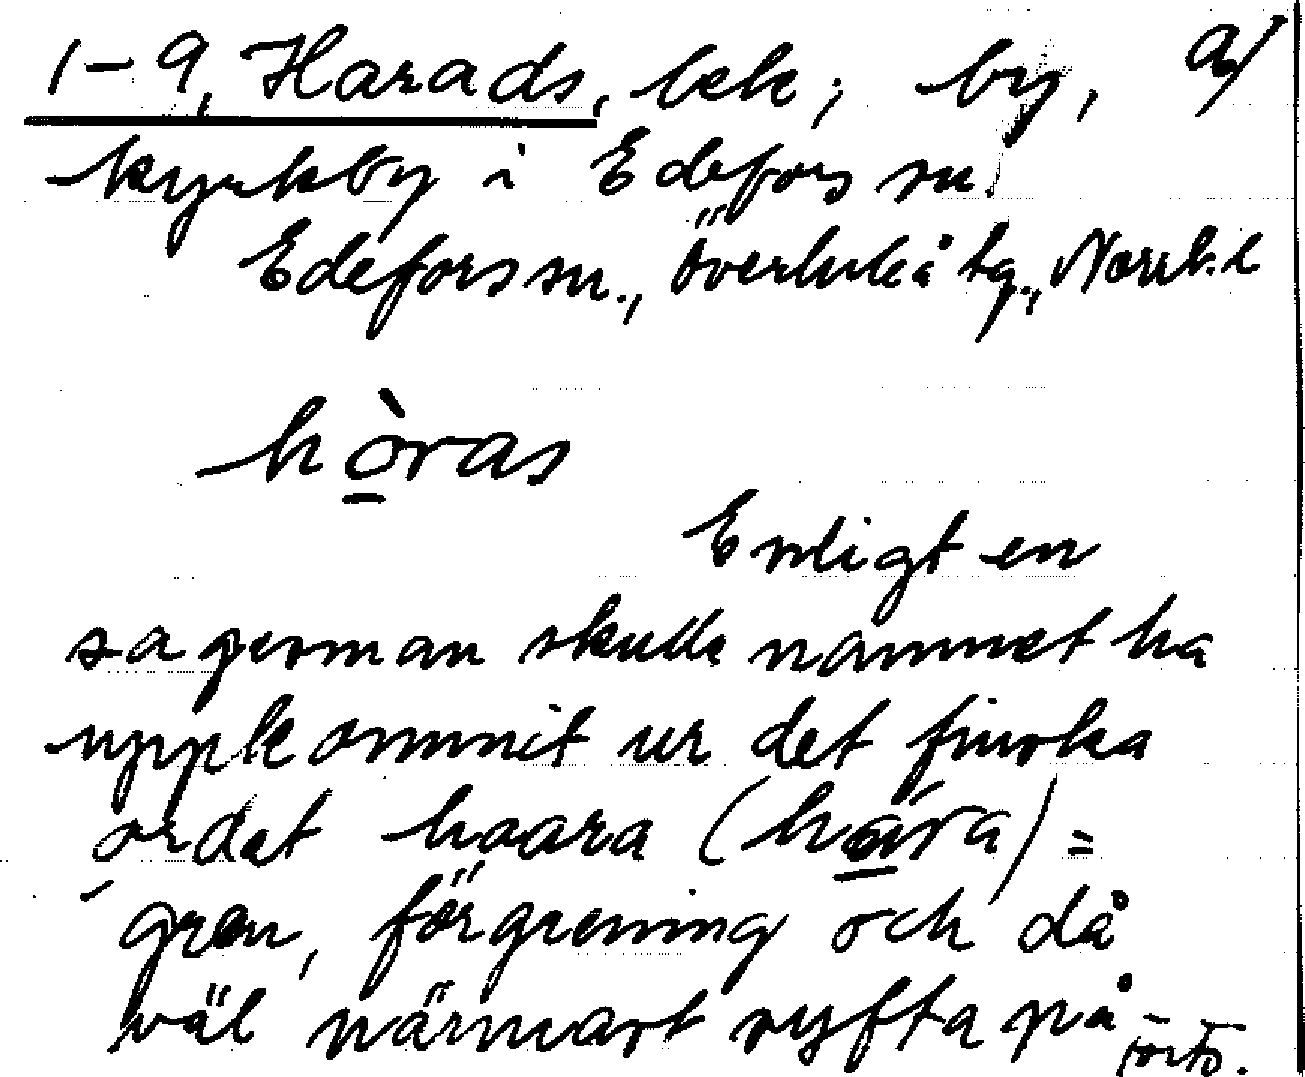 1-9, Harads, bek; by, a/
kyrkby i Edefors sn.
Edefors sn., Överluleå tg., Norrb. l
hòras
Enligt en
sagesman skulle namnet ha
uppkommit ur det finska
ordet haara (hára) =
gren, förgrening och då
väl närmast syfta på
forts.